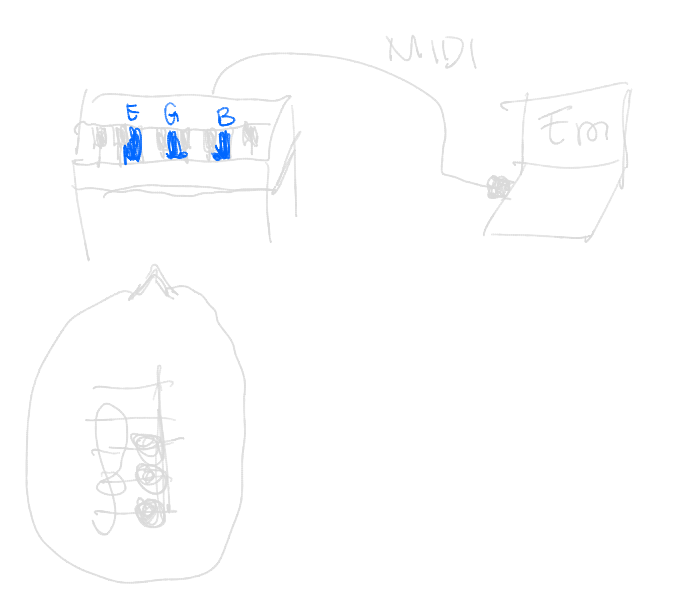 MIDI
E G B
Em